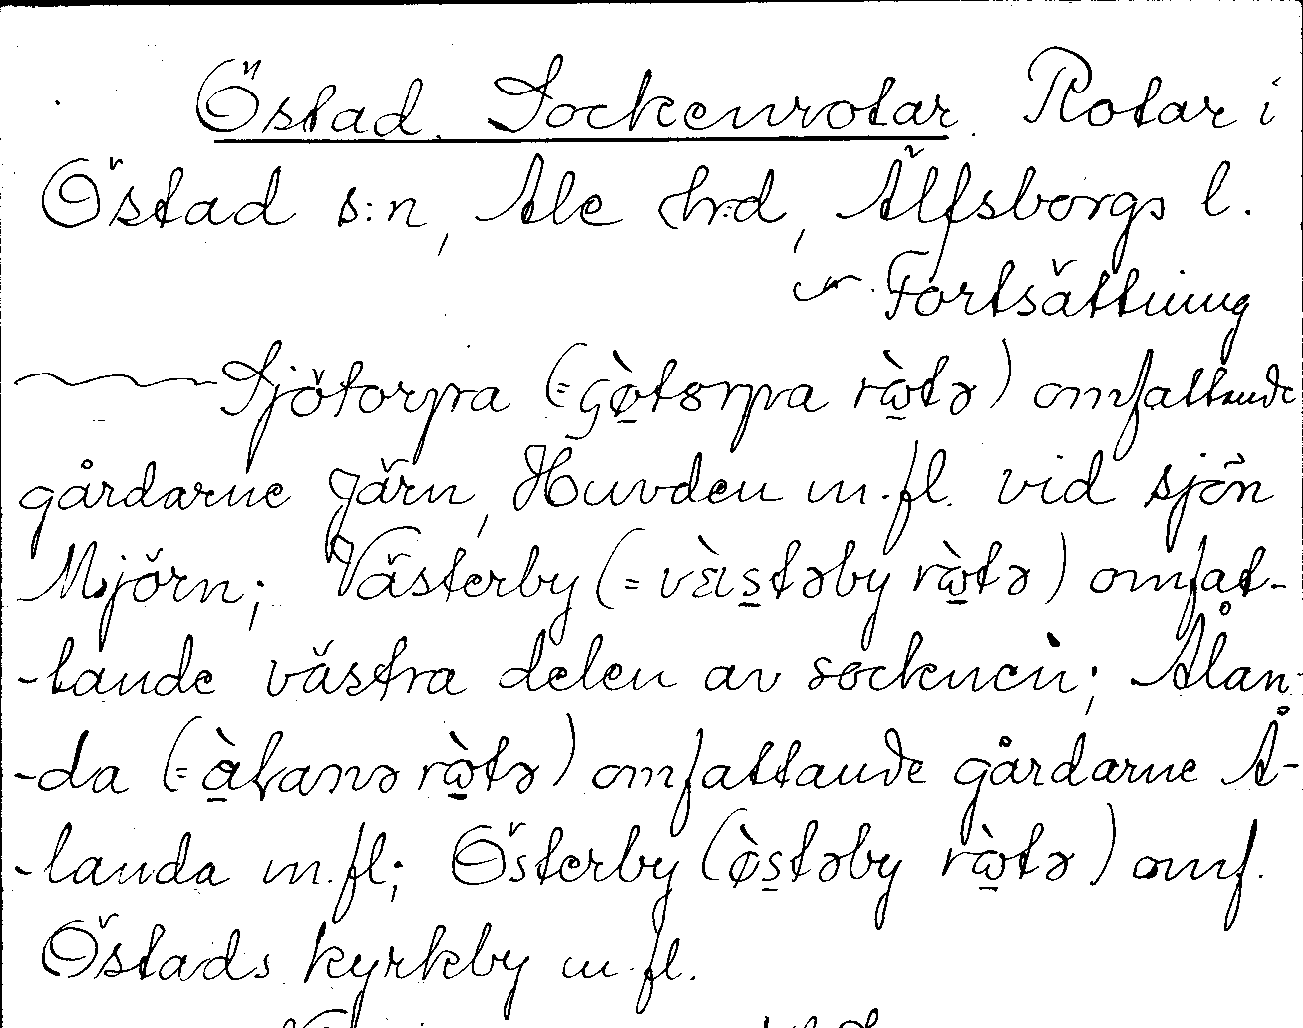 Östad. Sockenrotar. Rotar i
Östad s:n, Ale hrd, Älfsborgs l.
Fortsättning
Sjötorpa (= ɕø̀torpa rὼtə) omfattande
gårdarne Järn, Huvden m.fl. vid sjön
Mjörn; Västerby (= vὲistəby rὼtə) omfat-
-tande västra delen av socknen; Ålan-
-da (= àlanə rὼtə) omfattande gårdarne Å-
-landa m.fl; Österby (ø̀stəby rὼtə) omf.
Östads kyrkby m.fl.